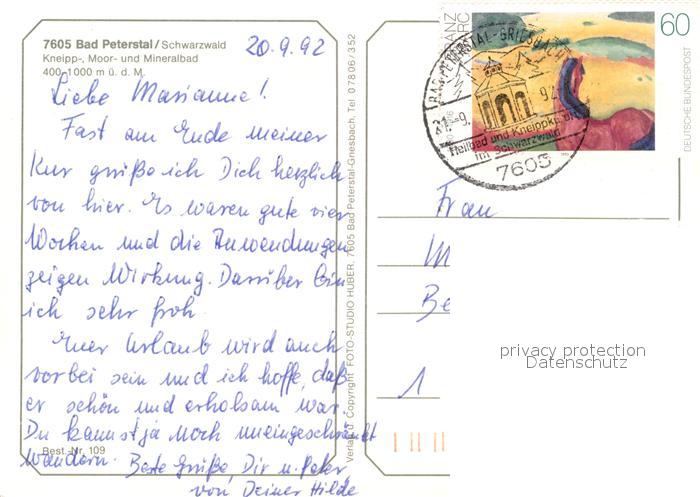 7605 Bad Peterstal / Schwarzwald
Kneipp-, Moor- und Mineralbad
400-1000 m ü. d. M.
20.9.92
Liebe Marianne!
Fast am Ende meiner
Kur grüße ich Dich herzlich
von hier. Es waren gute vier
Wochen und die Anwendungen
zeigen Wirkung. Darüber bin
ich sehr froh.
Euer Urlaub wird auch
vorbei sein und ich hoffe, daß
er schön und erholsam war.
Du kannst ja noch uneingeschränkt
wandern. Beste Grüße, Dir u. Peter
von Deiner Hilde
Best.-Nr. 109
Verlag u. Copyright FOTO-STUDIO HUBER, 7605 Bad Peterstal-Griesbach, Tel. 0 78 06 / 352
FRANZ MARC
60
DEUTSCHE BUNDESPOST
BAD PETERSTAL-GRIESBACH
21.-9. 92
Heilbad und Kneippkurort
im Schwarzwald
7605
Frau
M
Be
1
privacy protection
Datenschutz